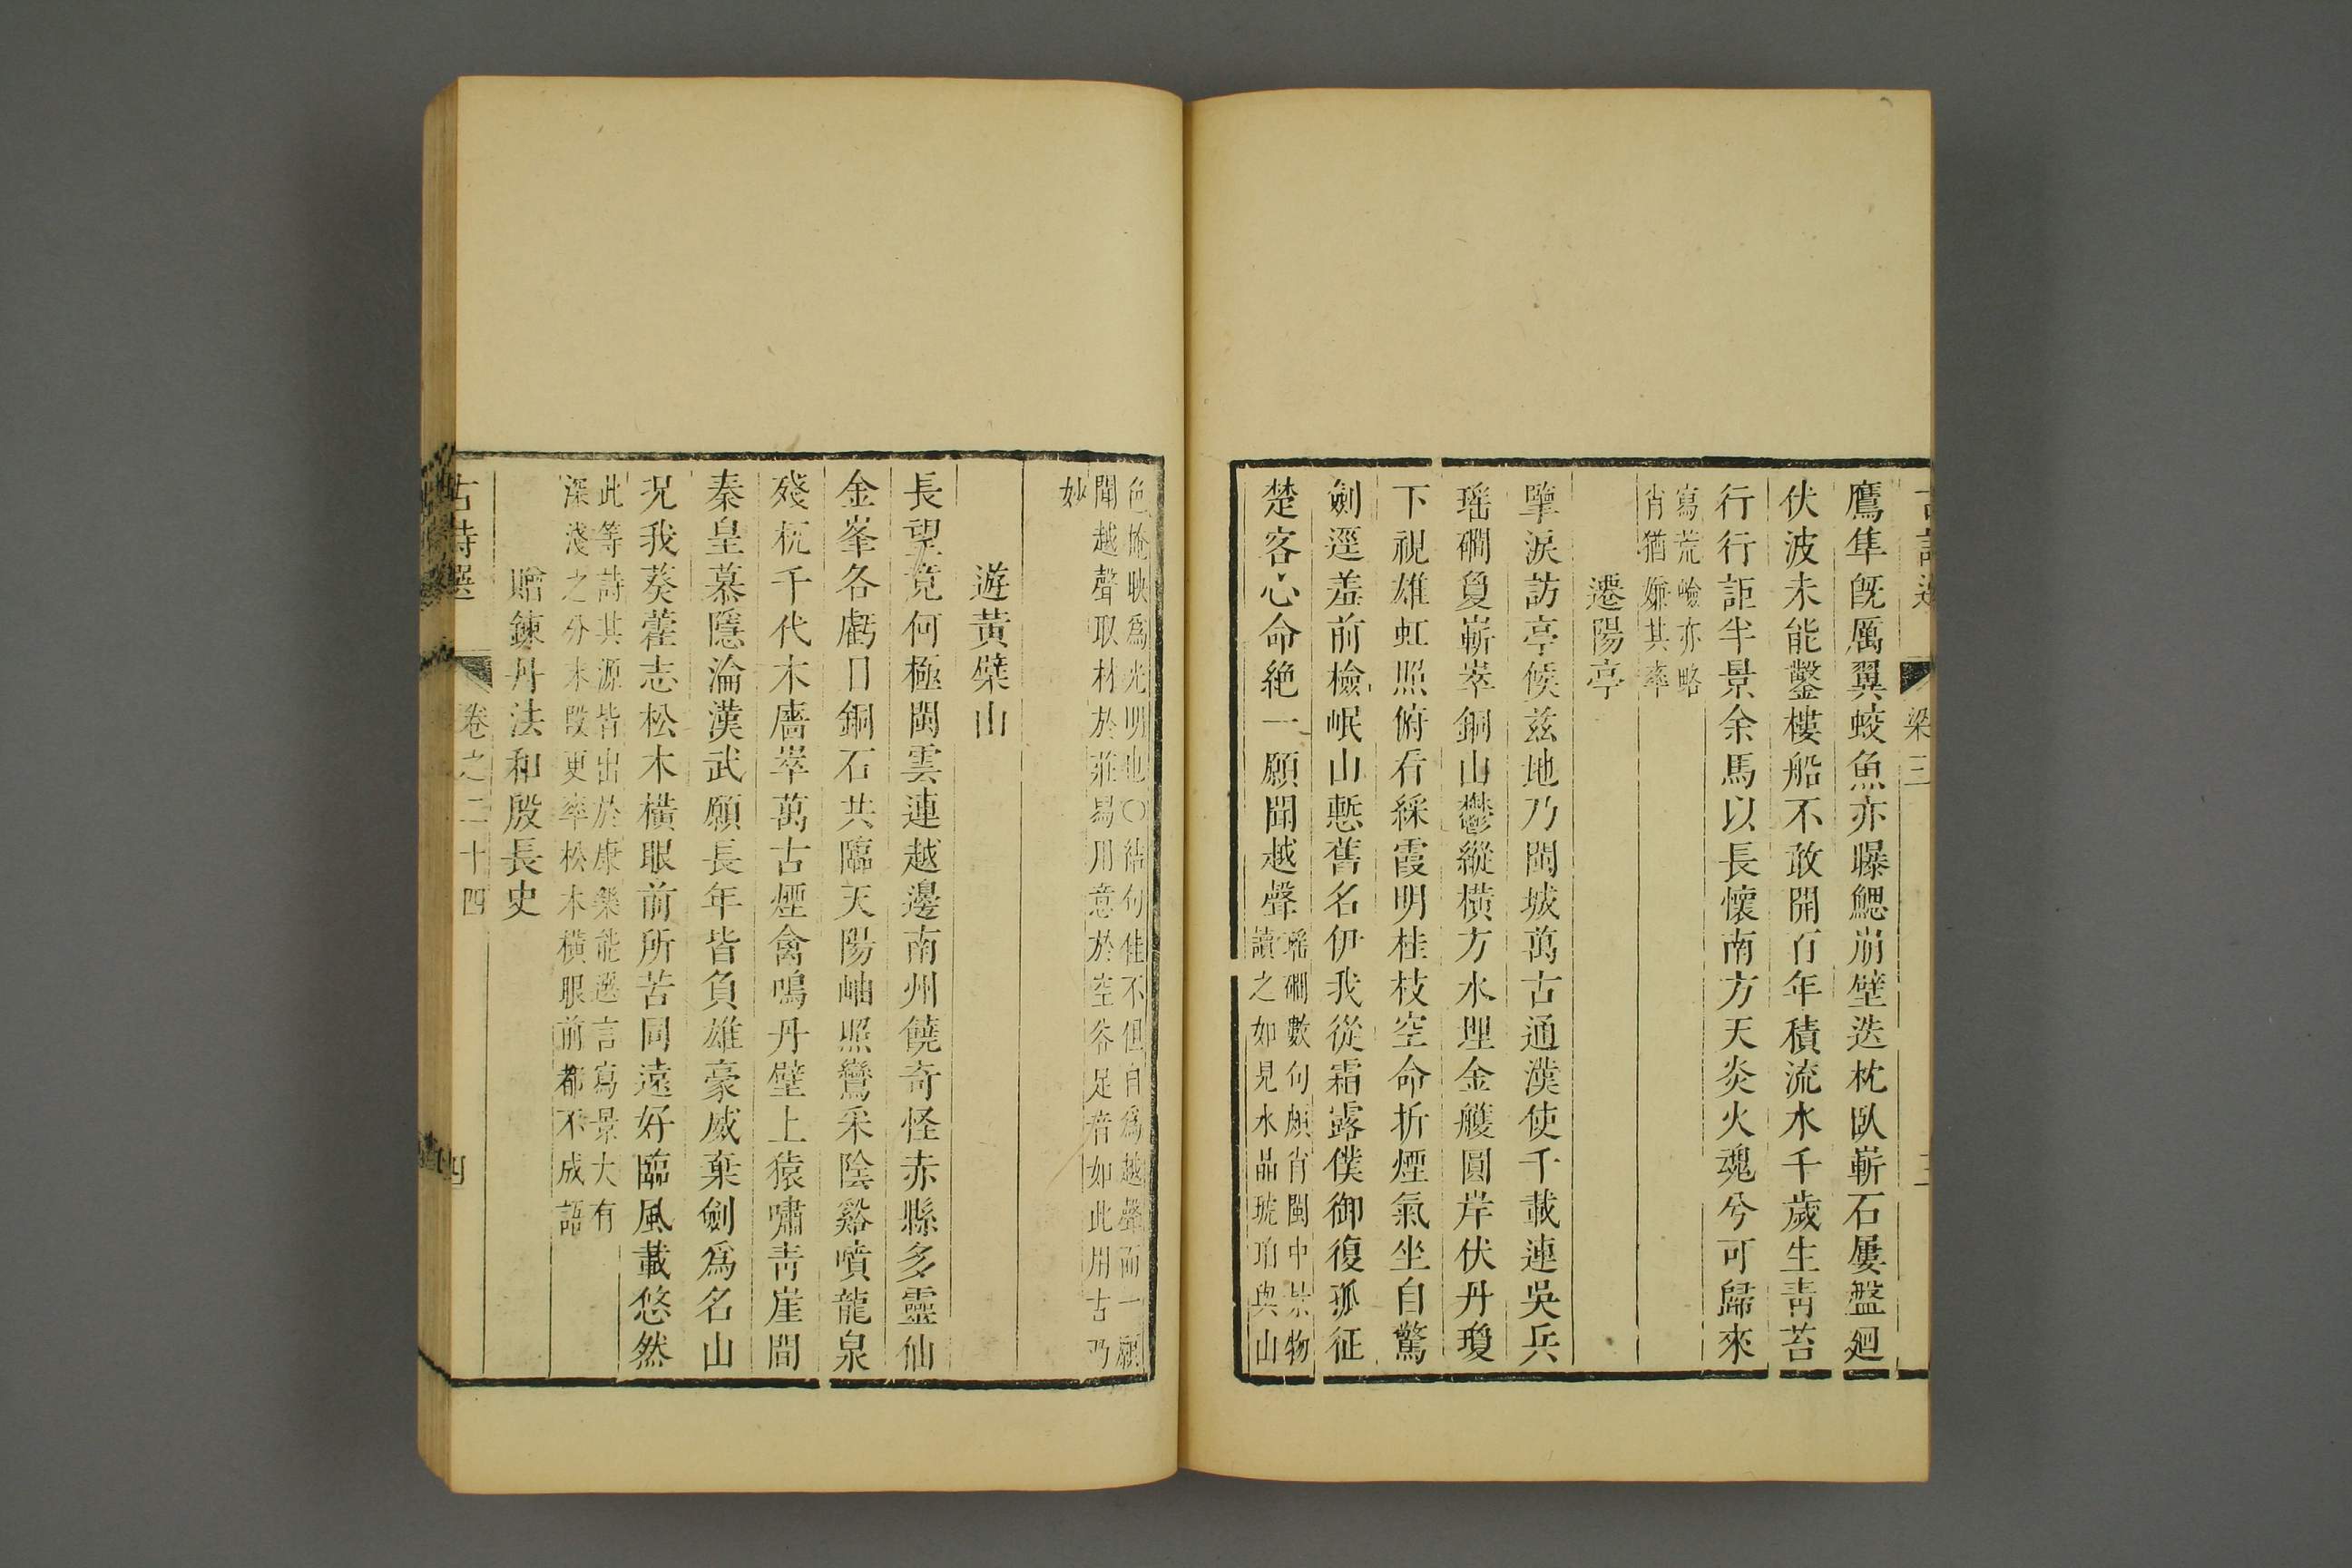 梁三
鷹隼旣厲翼蛟魚亦曝鰓崩壁迭枕臥嶄石屢盤廻
伏波未能鑿樓船不敢開百年積流水千歲生靑苔
行行詎半景余馬以長懷南方天炎火魂兮可歸來
寫荒嶮亦略
肖猶嫌其率
遷陽亭
擥淚訪亭候茲地乃閩城萬古通漢使千載連吳兵
瑶磵夐嶄崒銅山鬱縱橫方水埋金雘圓岸伏丹瓊
下視雄虹照俯看綵霞明桂枝空命折煙氣坐自驚
劍逕羞前檢岷山慙舊名伊我從霜露僕御復孤征
楚客心命絶一願聞越聲
瑶磵數句頗肖閩中景物
讀之如見水晶琥珀與山
色掩映爲光明也〇結句佳不但自爲越聲而一願
聞越聲取材於莊舄用意於空谷足音如此用古乃
妙
遊黃櫱山
長望竟何極閩雲連越邊南州饒奇怪赤縣多靈仙
金峯各虧日銅石共臨天陽岫照鸞采陰谿噴龍泉
殘杌千代木廧崒萬古煙禽鳴丹壁上猿嘯靑崖間
秦皇慕隱淪漢武願長年皆負雄豪威棄劍爲名山
况我葵藿志松木橫眼前所苦同遠好臨風載悠然
此等詩其源皆出於康樂能選言寫景大有
深淺之分末段更率松木橫眼前都不成語
贈鍊丹法和殷長史
古詩選 卷之二十四 四